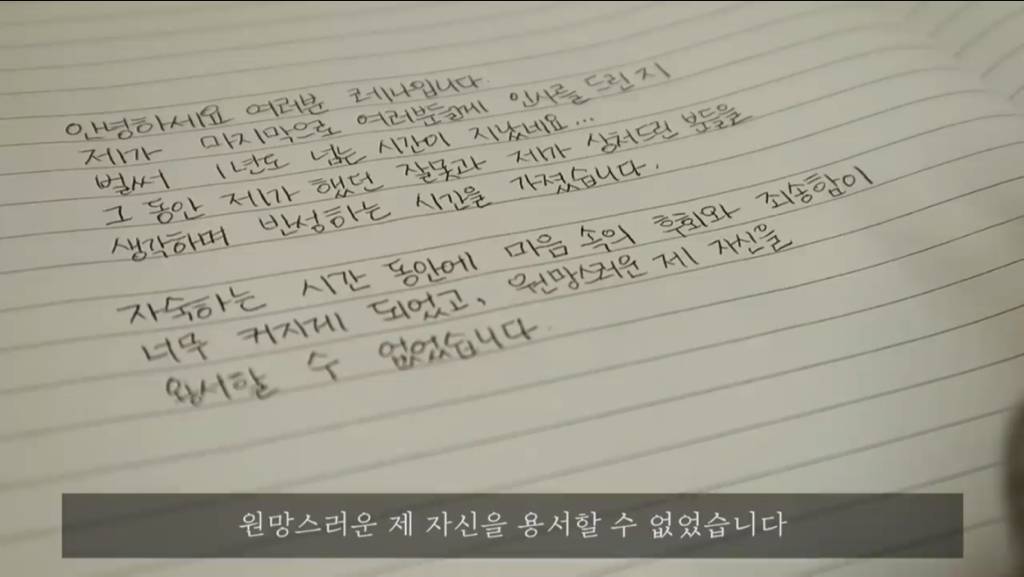 안녕하세요 여러분 레나입니다.
제가 마지막으로 여러분들께 인사를 드린 지
벌써 1년도 넘는 시간이 지났네요...
그 동안 제가 했던 잘못과 제가 상처드린 분들을
생각하며 반성하는 시간을 가졌습니다.
자숙하는 시간 동안에 마음 속의 후회와 죄송함이
너무 커지게 되었고, 원망스러운 제 자신을
용서할 수 없었습니다
원망스러운 제 자신을 용서할 수 없었습니다